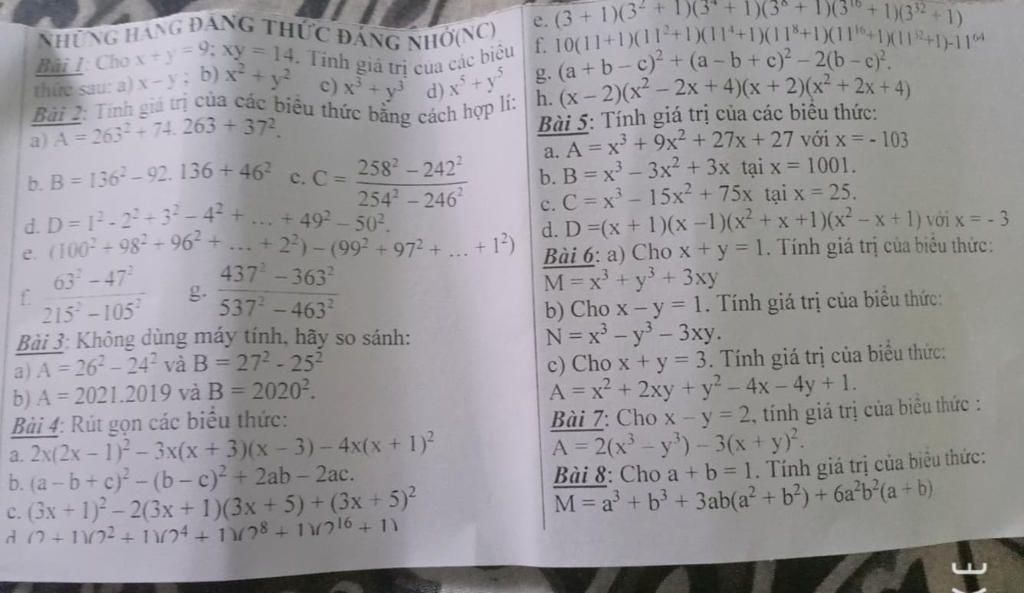 NHỮNG HẰNG ĐẲNG THỨC ĐÁNG NHỚ(NC)
Bài 1: Cho x + y = 9; xy = 14. Tính giá trị của các biểu
thức sau: a) x – y ; b) x² + y² c) x³ + y³ d) x⁵ + y⁵
Bài 2: Tính giá trị của các biểu thức bằng cách hợp lí:
a) A = 263² + 74. 263 + 37².
b. B = 136² – 92. 136 + 46² c. C = (258² – 242²)/(254² – 246²)
d. D = 1² - 2² + 3² – 4² + … + 49² – 50².
e. (100² + 98² + 96² + … + 2²) – (99² + 97² + … + 1²)
f. (63² – 47²)/(215² – 105²) g. (437² – 363²)/(537² – 463²)
Bài 3: Không dùng máy tính, hãy so sánh:
a) A = 26² – 24² và B = 27² - 25²
b) A = 2021.2019 và B = 2020².
Bài 4: Rút gọn các biểu thức:
a. 2x(2x – 1)² – 3x(x + 3)(x – 3) – 4x(x + 1)²
b. (a – b + c)² – (b – c)² + 2ab – 2ac.
c. (3x + 1)² – 2(3x + 1)(3x + 5) + (3x + 5)²
d. (2 + 1)(2² + 1)(2⁴ + 1)(2⁸ + 1)(2¹⁶ + 1)
e. (3 + 1)(3² + 1)(3⁴ + 1)(3⁸ + 1)(3¹⁶ + 1)(3³² + 1)
f. 10(11+1)(11²+1)(11⁴+1)(11⁸+1)(11¹⁶+1)(11³²+1)-11⁶⁴
g. (a + b – c)² + (a – b + c)² – 2(b – c)².
h. (x – 2)(x² – 2x + 4)(x + 2)(x² + 2x + 4)
Bài 5: Tính giá trị của các biểu thức:
a. A = x³ + 9x² + 27x + 27 với x = - 103
b. B = x³ – 3x² + 3x tại x = 1001.
c. C = x³ – 15x² + 75x tại x = 25.
d. D =(x + 1)(x –1)(x² + x +1)(x² – x + 1) với x = - 3
Bài 6: a) Cho x + y = 1. Tính giá trị của biểu thức:
M = x³ + y³ + 3xy
b) Cho x – y = 1. Tính giá trị của biểu thức:
N = x³ – y³ – 3xy.
c) Cho x + y = 3. Tính giá trị của biểu thức:
A = x² + 2xy + y² – 4x – 4y + 1.
Bài 7: Cho x – y = 2, tính giá trị của biểu thức :
A = 2(x³ – y³) – 3(x + y)².
Bài 8: Cho a + b = 1. Tính giá trị của biểu thức:
M = a³ + b³ + 3ab(a² + b²) + 6a²b²(a + b)